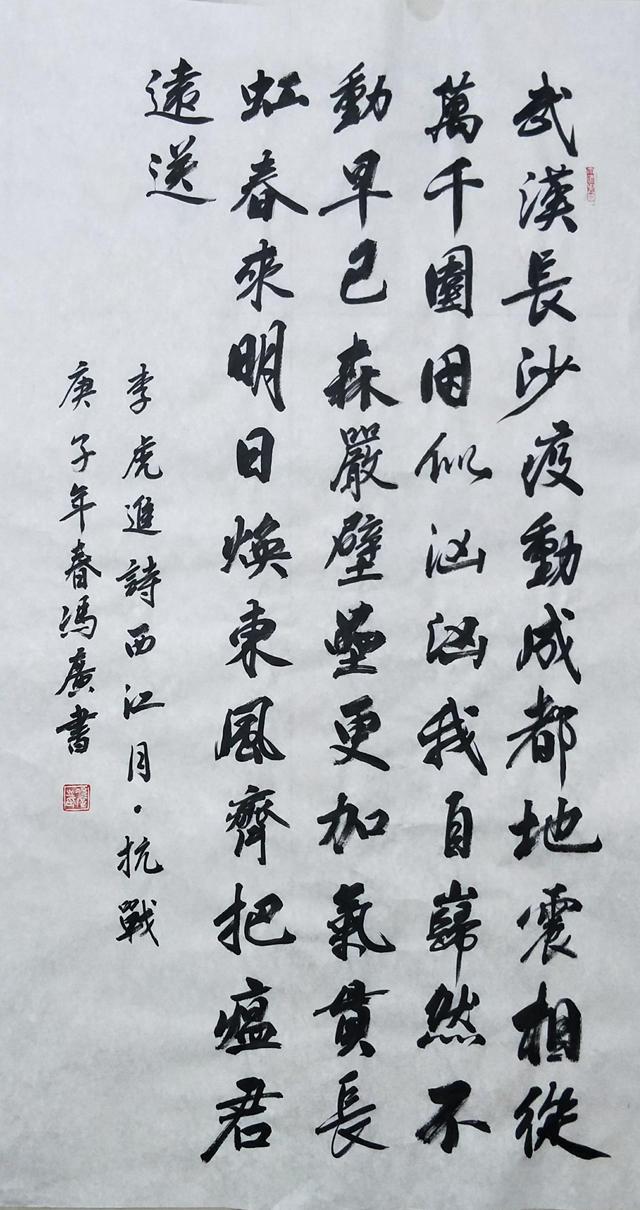 武漢長沙疫動成都地震相從
萬千圍困似汹汹我自巋然不
動早已森嚴壁壘更加氣貫長
虹春來明日煥東風齊把瘟君
遠送
李虎進詩西江月·抗戰
庚子年春馮廣書